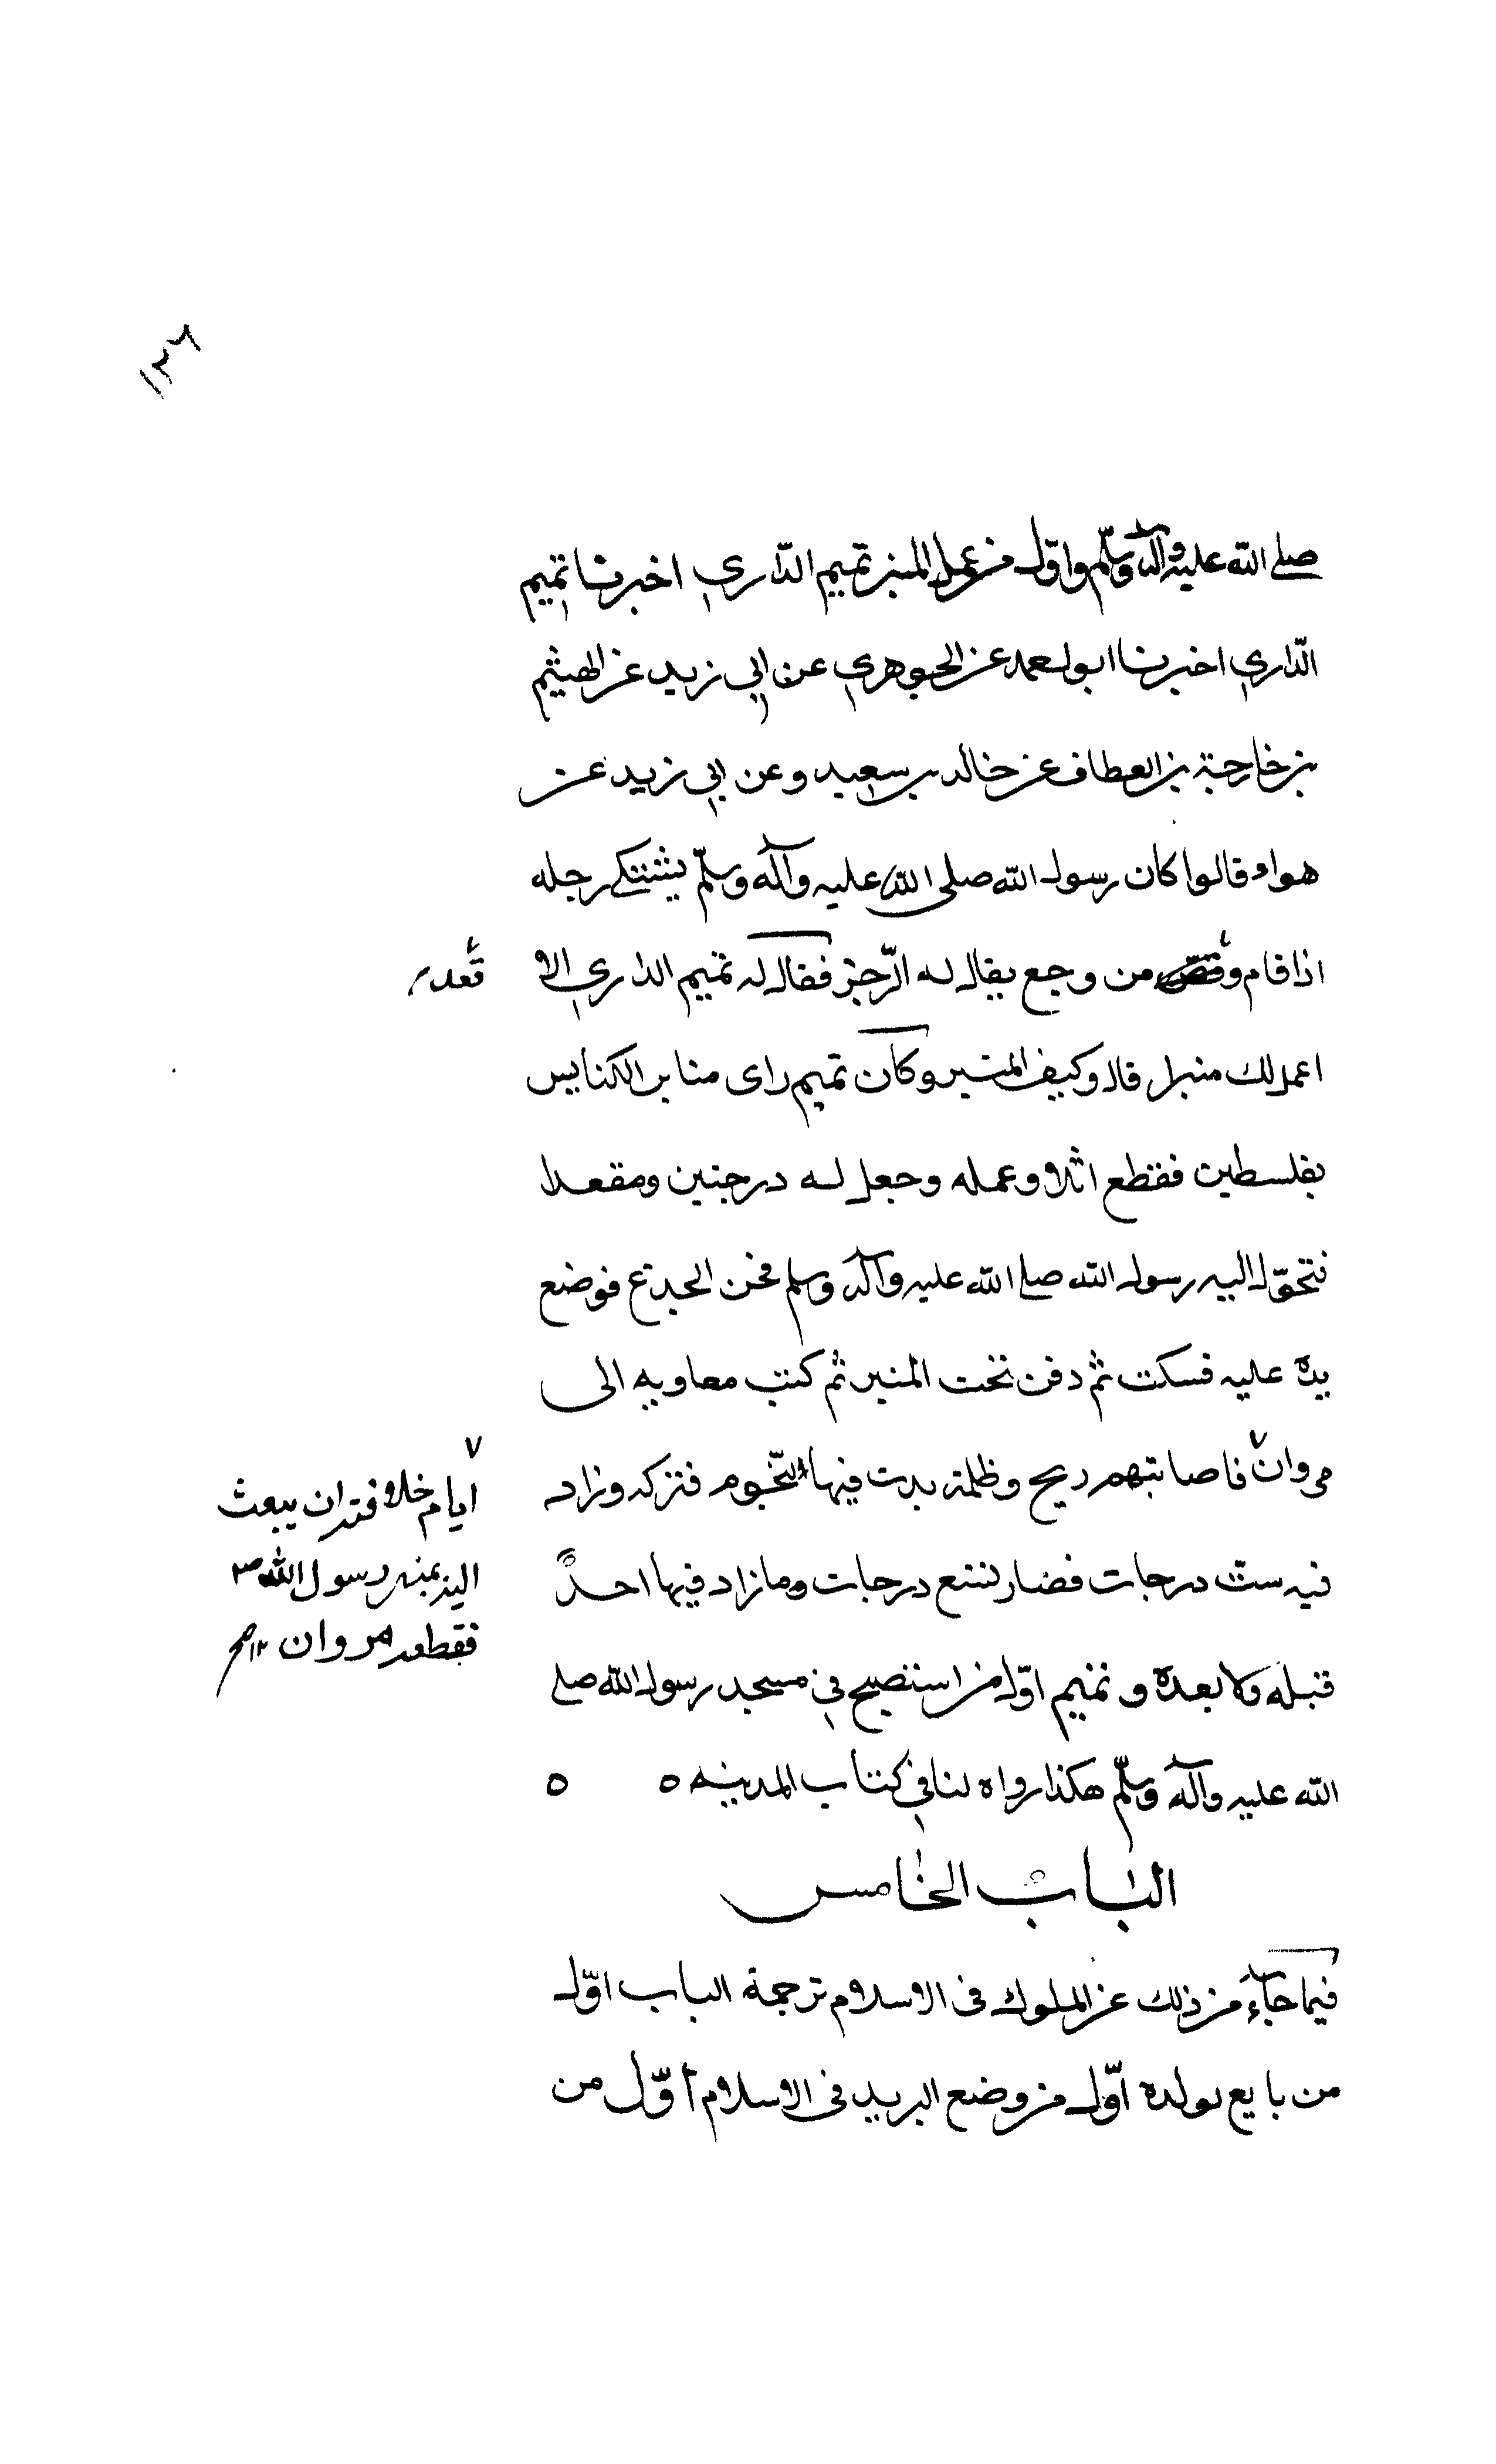 ١٢٦
صلى الله عليه وآله وسلم واول من عمل المنبر تميم الداري اخبرنا تميم
الداري اخبرنا ابو احمد عن الجوهري عن ابي زيد عن الهيثم
بن خارجة بن العطاف عن خالد بن سعيد وعن ابي زيد عن
هواء قالوا كان رسول الله صلى الله عليه وآله وسلم يشتكي رجله
اذا قام و من وجع يقال له الزجر فقال له تميم الداري الا
قعد
اعمل لك منبرا قال وكيف المنبر وكان تميم راى منابر الكنايس
بفلسطين فقطع اثلا وعمله وجعل له درجتين ومقعدا
فتحول اليه رسول الله صلى الله عليه وآله وسلم فحن الجذع فوضع
يده عليه فسكت ثم دفن تحت المنبر ثم كتب معاويه الى
مروان فاصابتهم ريح وظلمة بدت فيها النجوم فتركه وزاد
ايام خلافته ان يبعث
اليه بمنبر رسول الله ص
فقطعه مروان ١٢ صح
فيه ست درجات فصار تسع درجات وما زاد فيها احد
قبله ولا بعده و تميم اول من استصبح في مسجد رسول الله صلى
الله عليه وآله وسلم هكذا رواه لنا في كتاب المدينه ٥ ٥
الباب الخامس
فيما جاء من ذلك عن الملوك في الاسلام ترجمة الباب اول
من بايع لولده اول من وضع البريد في الاسلام اول من